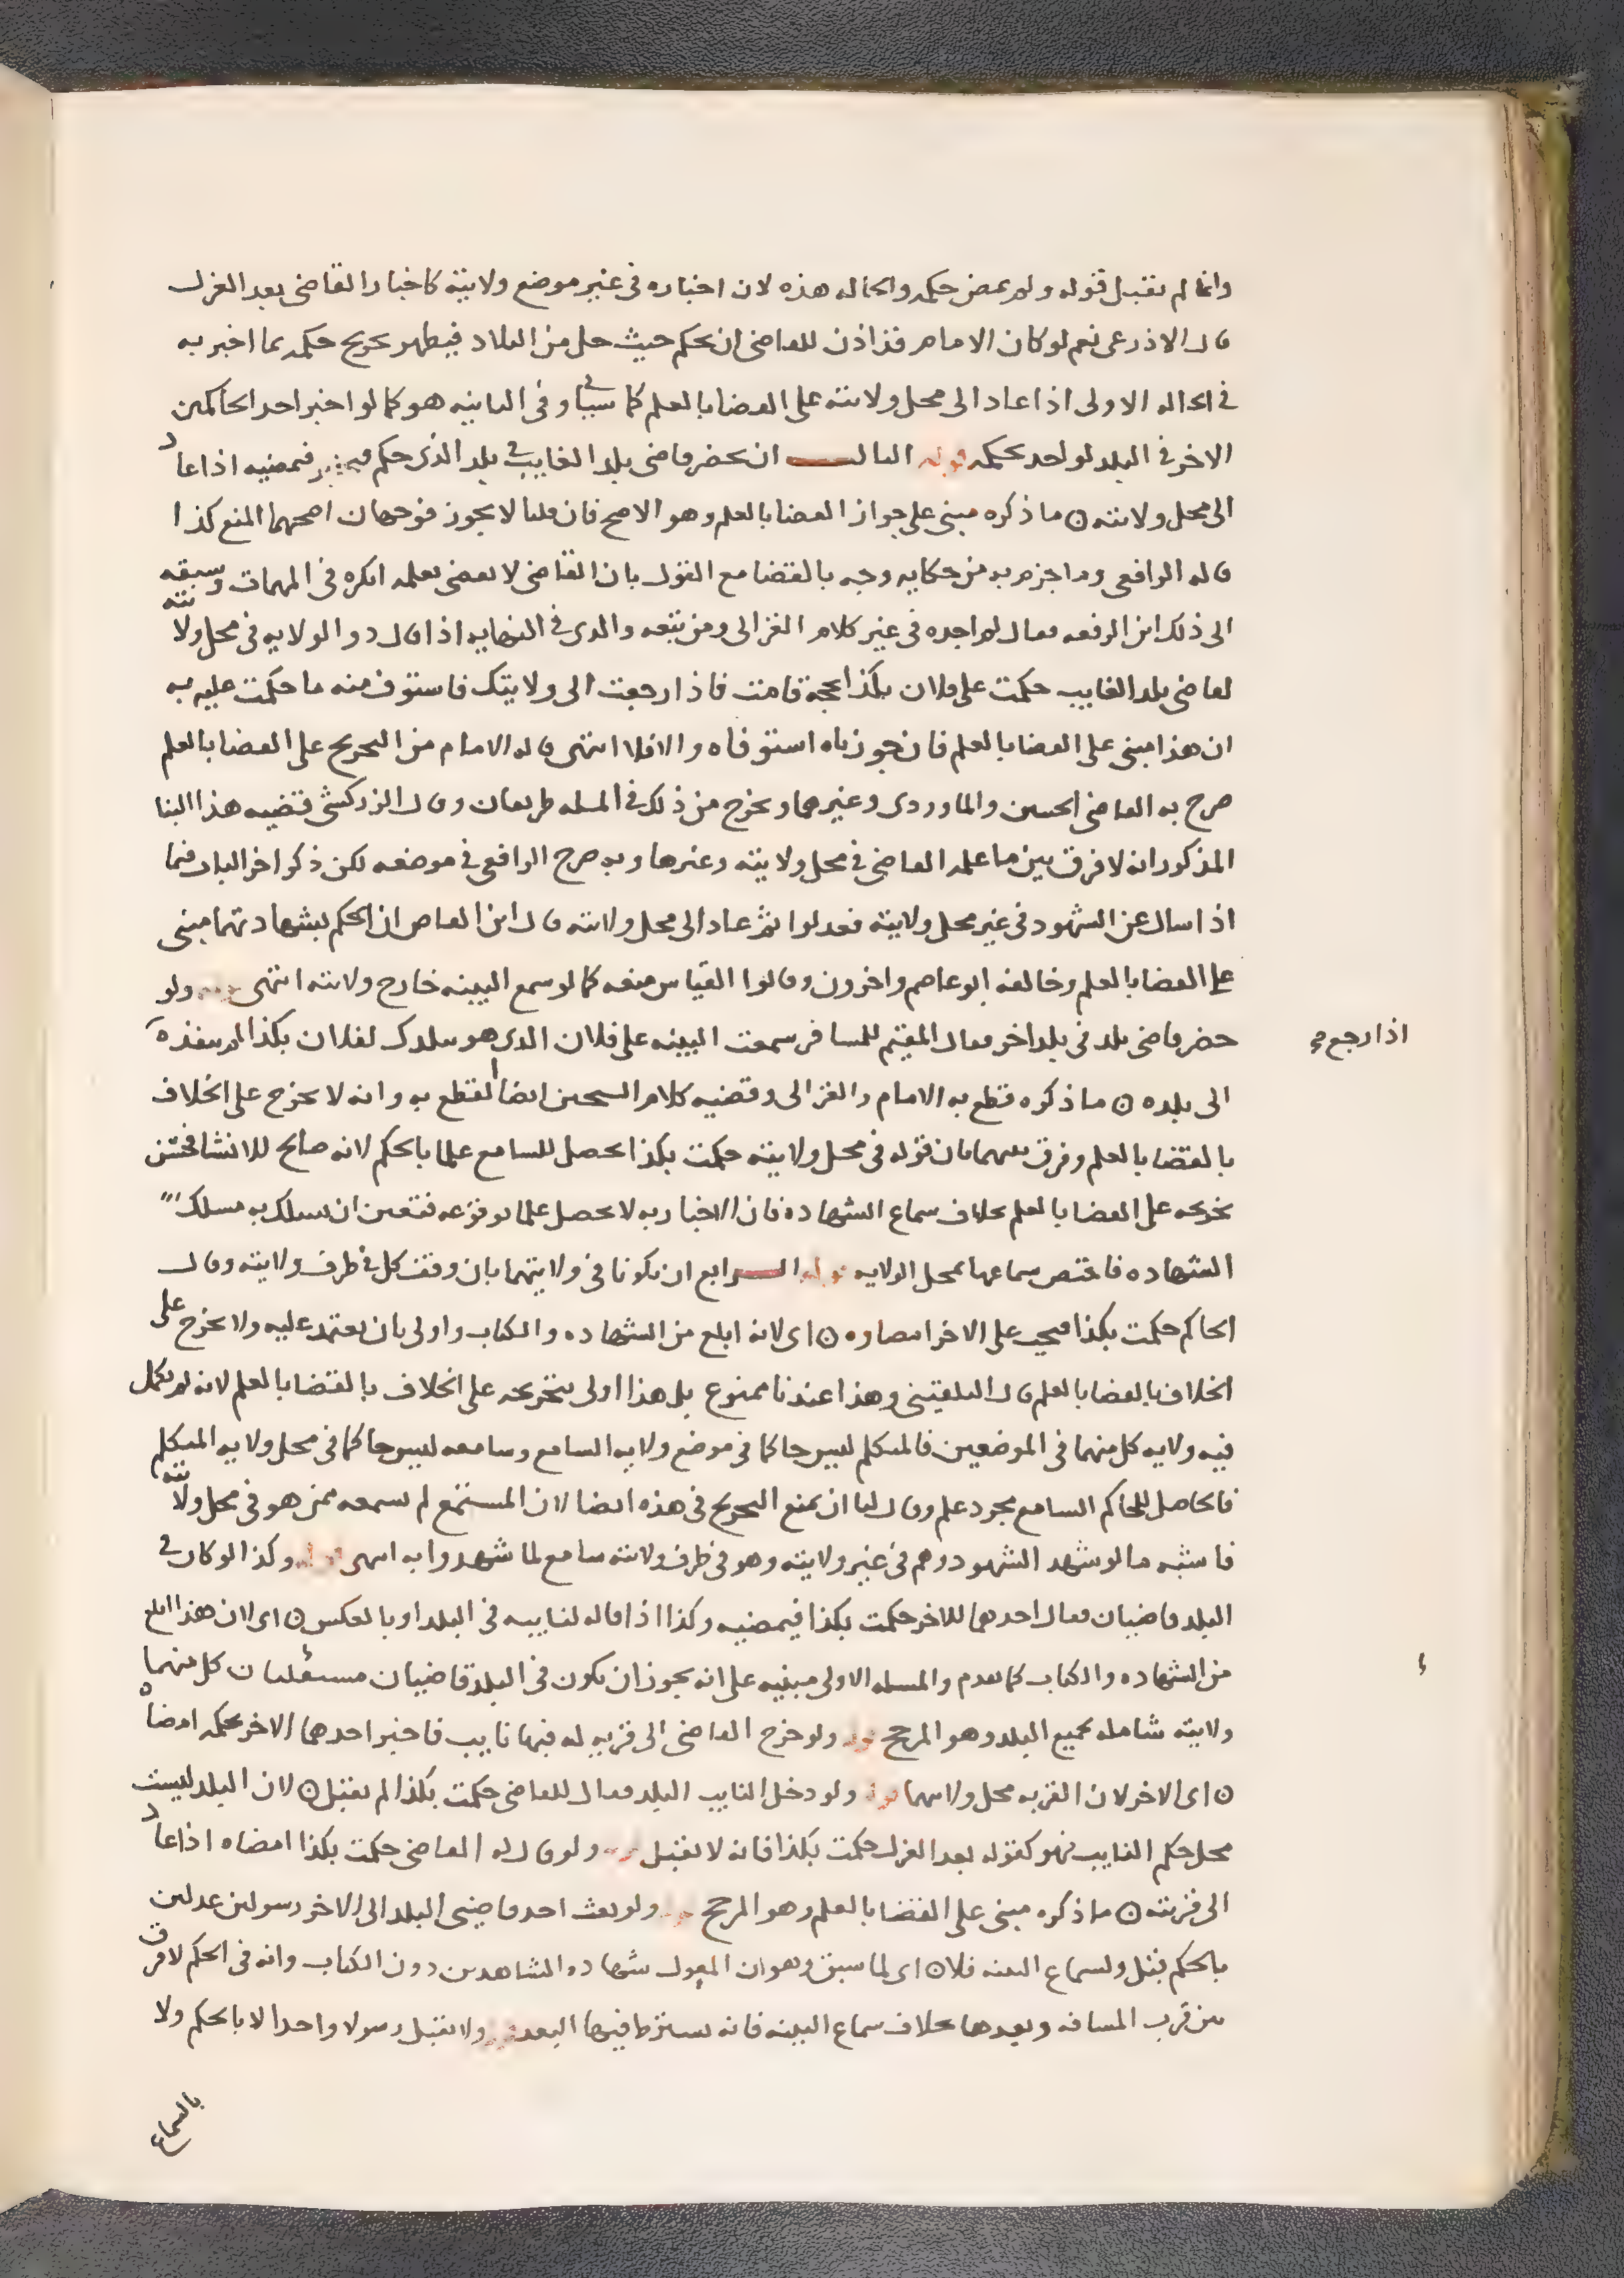 وانما لم يقبل قوله ولم يمض حكمه والحاله هذه لان اخباره فى غير موضع ولايته كاخبار القاضى بعد العزل
قال الاذرعى نعم لو كان الامام قد اذن للقاضى ان يحكم حيث حل من البلاد فيظهر تخريج حكمه بما اخبر به
فى الحاله الاولى اذا عاد الى محل ولايته على القضا بالعلم كما سياتى وفى الثانيه هو كما لو اخبر احد الحاكمين
الاخر فى البلد لواحد بحكمه قوله الثالث ان يحضر قاضى بلد الغايب فى بلد الذى حكم فيخبر فيمضيه اذا عاد
الى محل ولايته ۞ ما ذكره مبنى على جواز القضا بالعلم وهو الاصح فان قلنا لا يجوز فوجهان اصحهما المنع كذا
قاله الرافعى وما جزم به من حكايه وجه بالقضا مع القول بان القاضى لا يقضى بعلمه انكره فى المهمات وسبقه
الى ذلك ابن الرفعه فقال لم اجده فى غير كلام الغزالى ومن تبعه والذى فى النهايه اذا قال ذو الولايه فى محل ولايته
لقاضى بلد الغايب حكمت على فلان بكذا بحجة قامت فاذا رجعت الى ولايتك فاستوف منه ما حكمت عليه به
ان هذا مبنى على القضا بالعلم فان جوزناه استوفاه والا فلا انتهى وما قاله الامام من التخريج على القضا بالعلم
صرح به القاضى الحسين والماوردى وغيرهما ويخرج من ذلك فى المسله طريقان وقال الزركشى قضيه هذا البنا
المذكور انه لا فرق بين ما علمه القاضى فى محل ولايته وغيرها وبه صرح الرافعى فى موضعه لكن ذكر اخر الباب فيما
اذا سال عن الشهود فى غير محل ولايته فعدلوا ثم عاد الى محل ولايته قال ابن القاص ان الحكم بشهادتهما مبنى
على القضا بالعلم وخالفه ابو عاصم واخرون وقالوا القياس منعه كما لو سمع البينه خارج ولايته انتهى قوله ولو
حضر قاضى بلد فى بلد اخر فقال المقيم للمسافر سمعت البينه على فلان الذى هو ببلدك لفلان بكذا لم ينفذه
اذا رجع صح
الى بلده ۞ ما ذكره قطع به الامام والغزالى وقضيه كلام الشيخين ايضا القطع به وانه لا يخرج على الخلاف
بالقضا بالعلم وفرق بينهما بان قوله فى محل ولايته حكمت بكذا يحصل للسامع علما بالحكم لانه صالح للانشا فحسن
تخريجه على القضا بالعلم بخلاف سماع الشهاده فان الاخبار به لا يحصل علما بوقوعه فتعين ان يسلك به مسلك
الشهاده فاختص سماعها بمحل الولايه قوله الرابع ان يكونا فى ولايتهما بان وقف كل فى طرف ولايته وقال
الحاكم حكمت بكذا فيجب على الاخر امضاوه ۞ اى لانه ابلغ من الشهاده والكتاب واولى بان يعتمد عليه ولا يخرج على
الخلاف بالقضا بالعلم قال البلقينى وهذا عندنا ممنوع بل هذا اولى بتخريجه على الخلاف بالقضا بالعلم لانه لم يكمل
فيه ولايه كل منهما فى الموضعين فالمتكلم ليس حاكما فى موضع ولايه السامع وسامعه ليس حاكما فى محل ولايه المتكلم
فالحاصل للحاكم السامع مجرد علم وقال لنا ان نمنع التخريج فى هذه ايضا لان المستمع لم يسمعه ممن هو فى محل ولايته
فاشبه ما لو شهد الشهود وهم فى غير ولايته وهو فى طرف ولايته سامع لما شهدوا به انتهى قوله وكذا لو كان فى
البلد قاضيان فقال احدهما للاخر حكمت بكذا فيمضيه وكذا اذا قاله لنايبه فى البلد او بالعكس ۞ اى لان هذا ابلغ
من الشهاده والكتاب كما تقدم والمسله الاولى مبنيه على انه يجوز ان يكون فى البلد قاضيان مستقلان كل منهما
ولايته شامله لجميع البلد وهو المرجح قوله ولو خرج القاضى الى قريه له فيها نايب فاخبر احدهما الاخر بحكمه امضاه
۞ اى الاخر لان القريه محل ولايتهما قوله ولو دخل النايب البلد فقال للقاضى حكمت بكذا لم يقبل ۞ لان البلد ليست
محل حكم النايب فهو كقوله بعد العزل حكمت بكذا فانه لا يقبل قوله ولو قال له القاضى حكمت بكذا امضاه اذا عاد
الى قريته ۞ ما ذكره مبنى على القضا بالعلم وهو المرجح قوله ولو بعث احد قاضيى البلد الى الاخر رسولين عدلين
بالحكم قبل ولسماع البينه فلا ۞ اى لما سبق وهو ان المعول شهاده الشاهدين دون الكتاب وانه فى الحكم لا فرق
بين قرب المسافه وبعدها بخلاف سماع البينه فانه يشترط فيها البعد قوله ولا يقبل رسولا واحدا لا بالحكم ولا
بالسماع